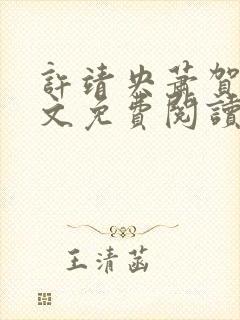 許靖央蕭賀
文免費閱讀
王清菡